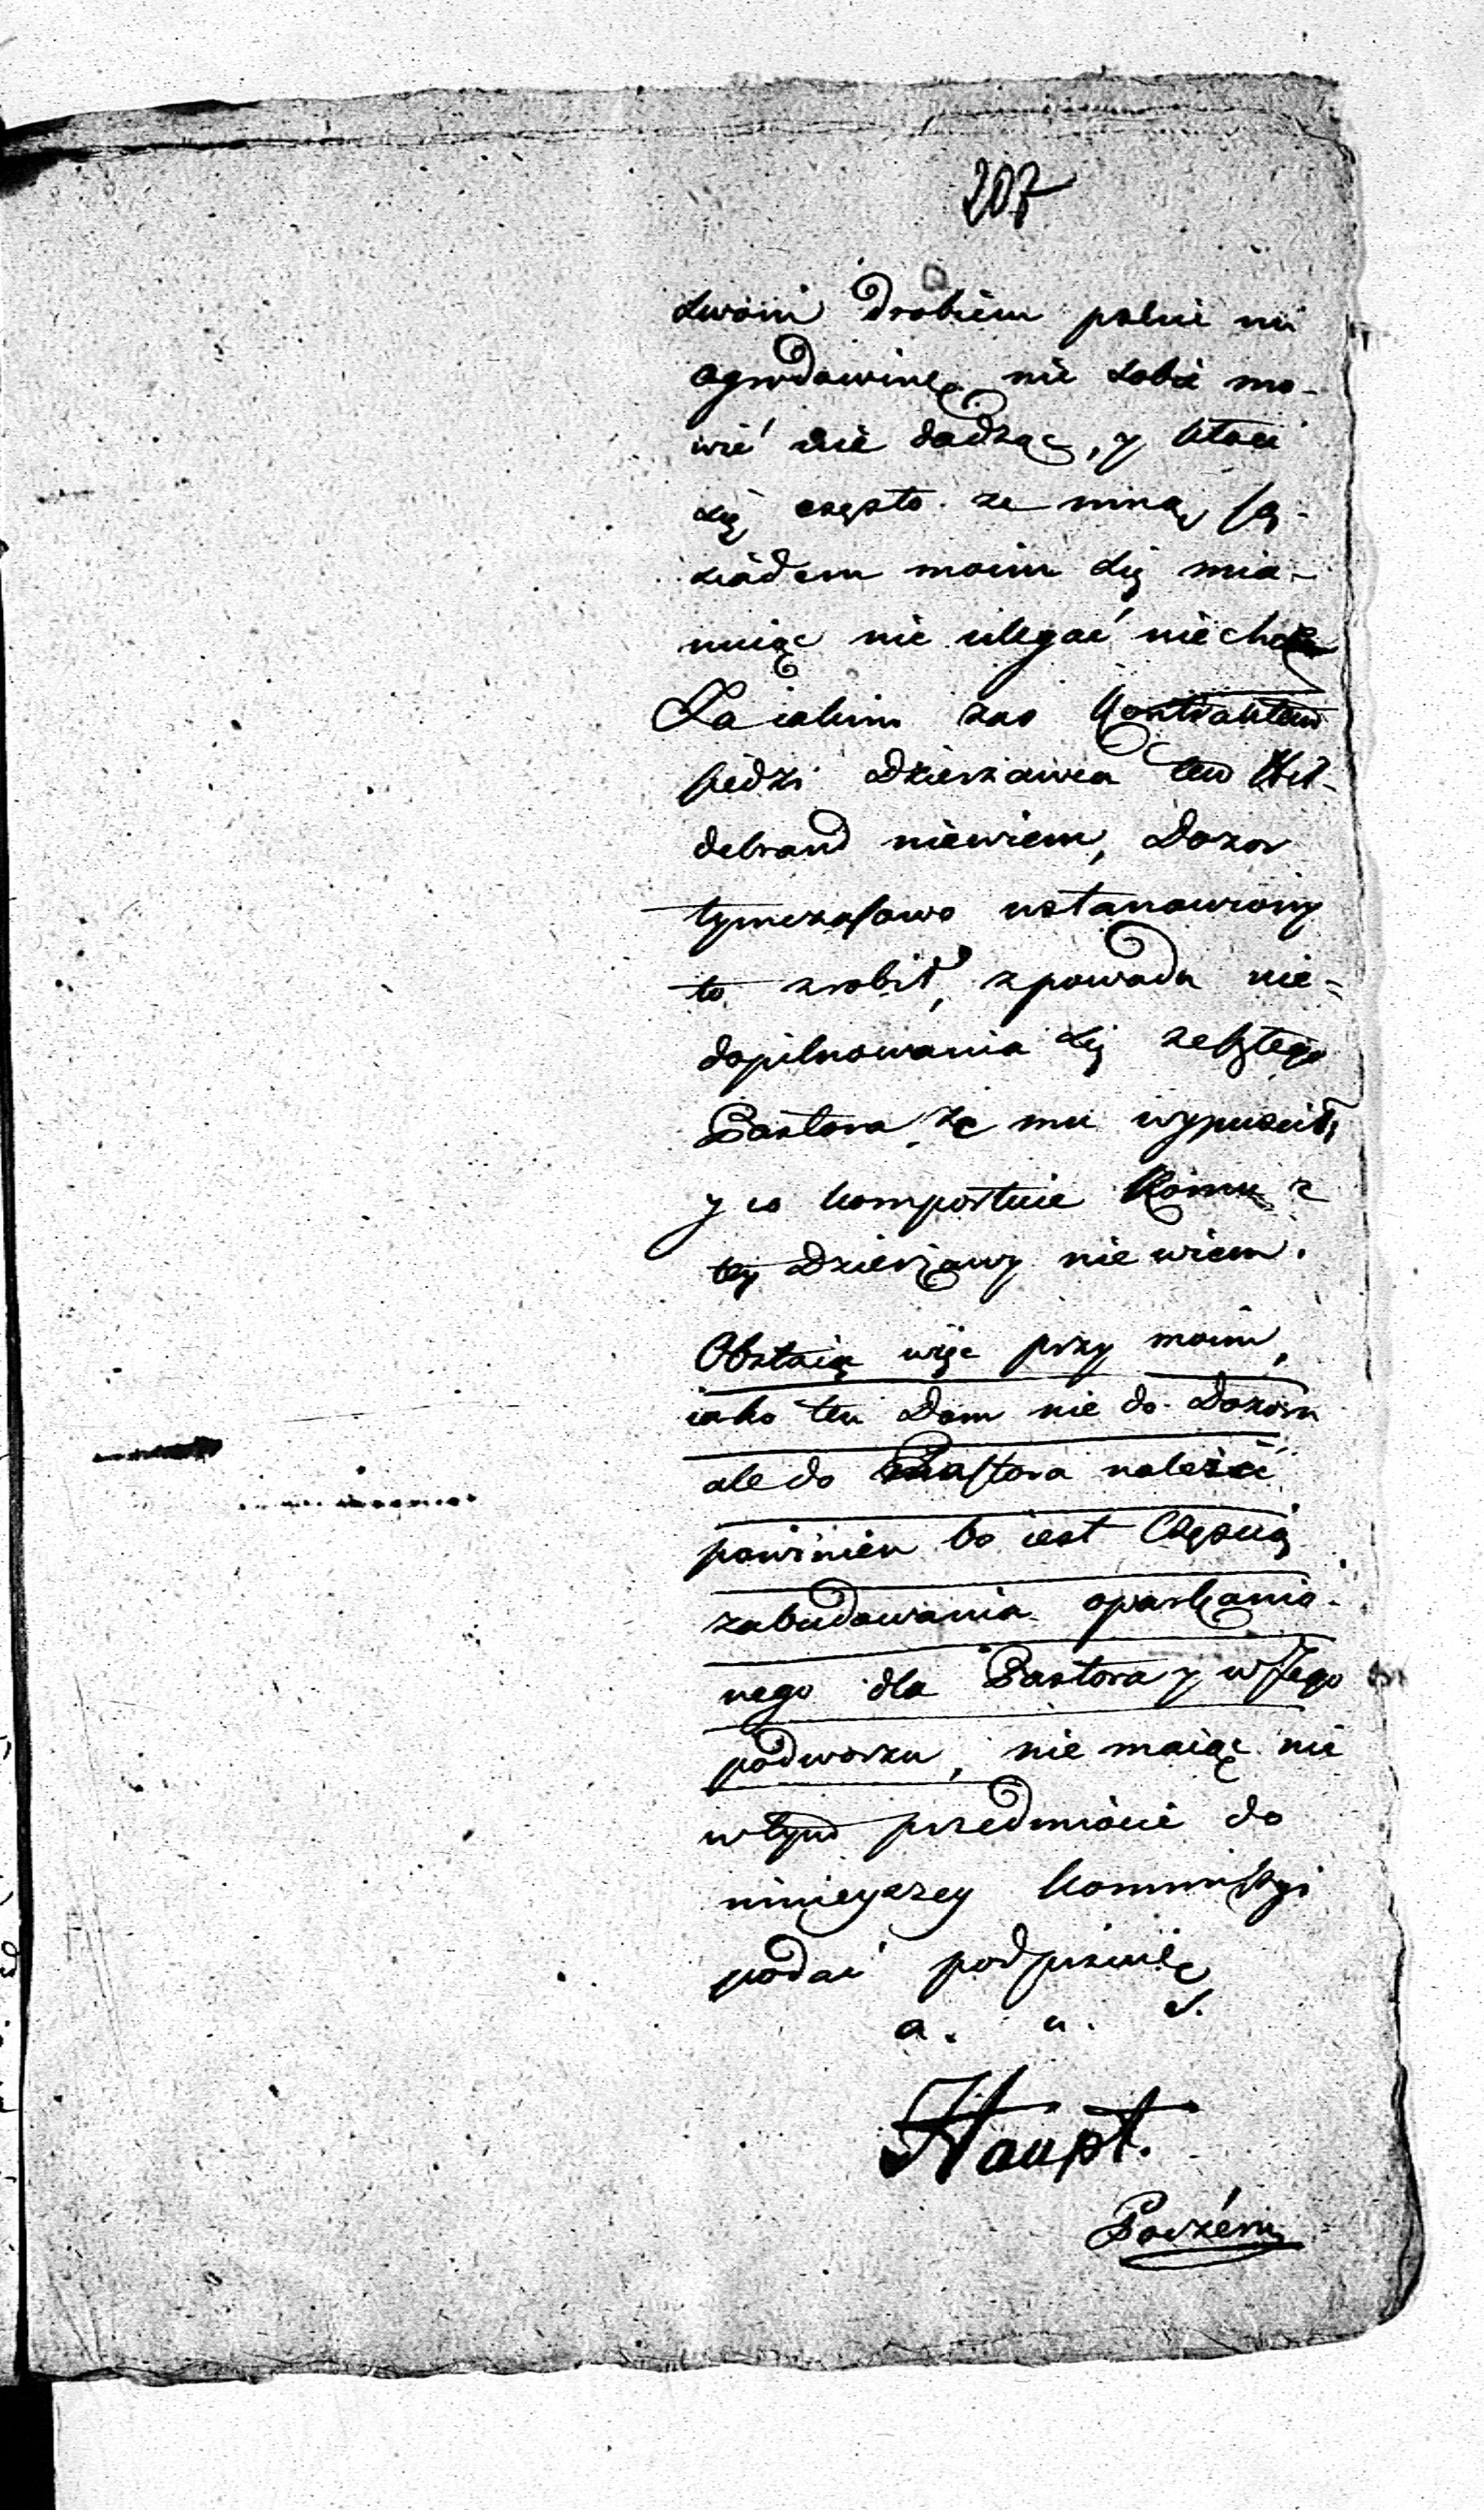 207
swoim drobiem polni mi
ogrodowinę, nie sobie mo-
wić nie dadząc, y kłoci
się często ze mną, są-
siadem moim się mia-
nuiąc nic ulegać nie chce
Za iakim zas Kontraktem
siedzi Dzierzawca ten Hil-
debrand niewiem, Dozor
tymczasowo ustanowiony
to zrobił, z powodu nie=
dopilnowania się zeszłego
Pastora że mu wypuścił,
y co komportuie Komu z
tey Dzierżawy nie wiem.
Obstaię więc przy moim,
iako ten Dom nie do Dozoru
ale do Pastora należeć
powinien bo iest Częścią
zabudowania oparkanio-
nego dla Pastora y w Jego
podworzu, nie maiąc nic
w tym przedmiocie do
ninieyszey Kommissyi
podać podpisuię
a. u. s.
Haupt.